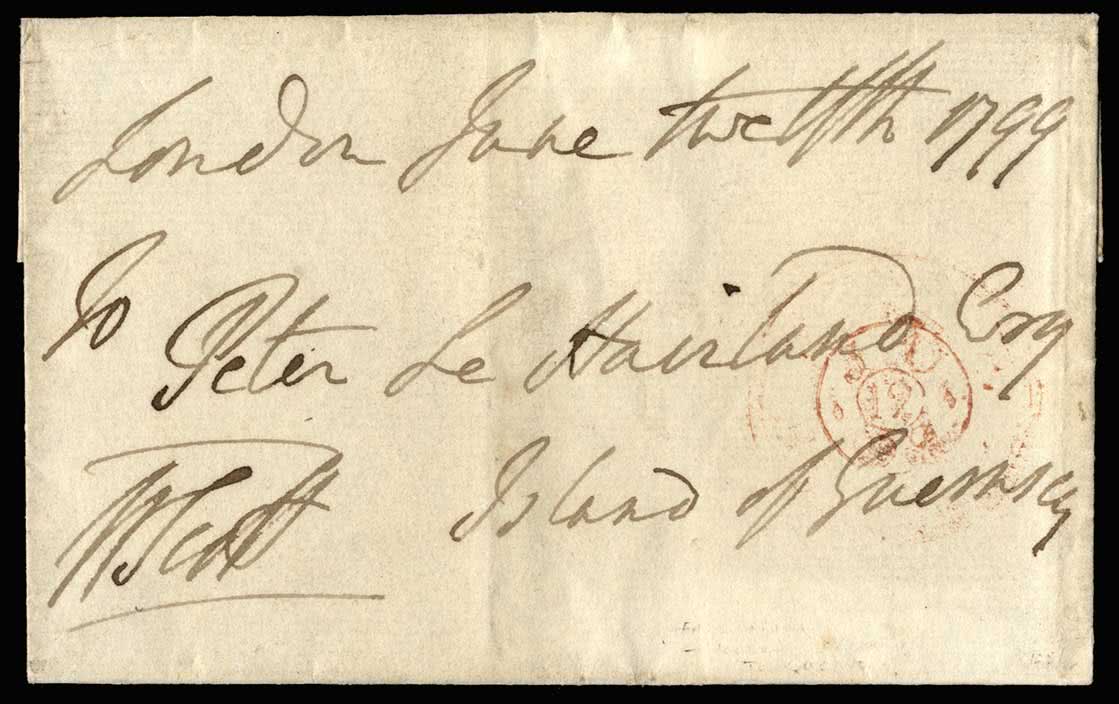 London June twelfth 1799
To
Peter Le Hairland Esq
Island of Guernsey
WScott
JU
12